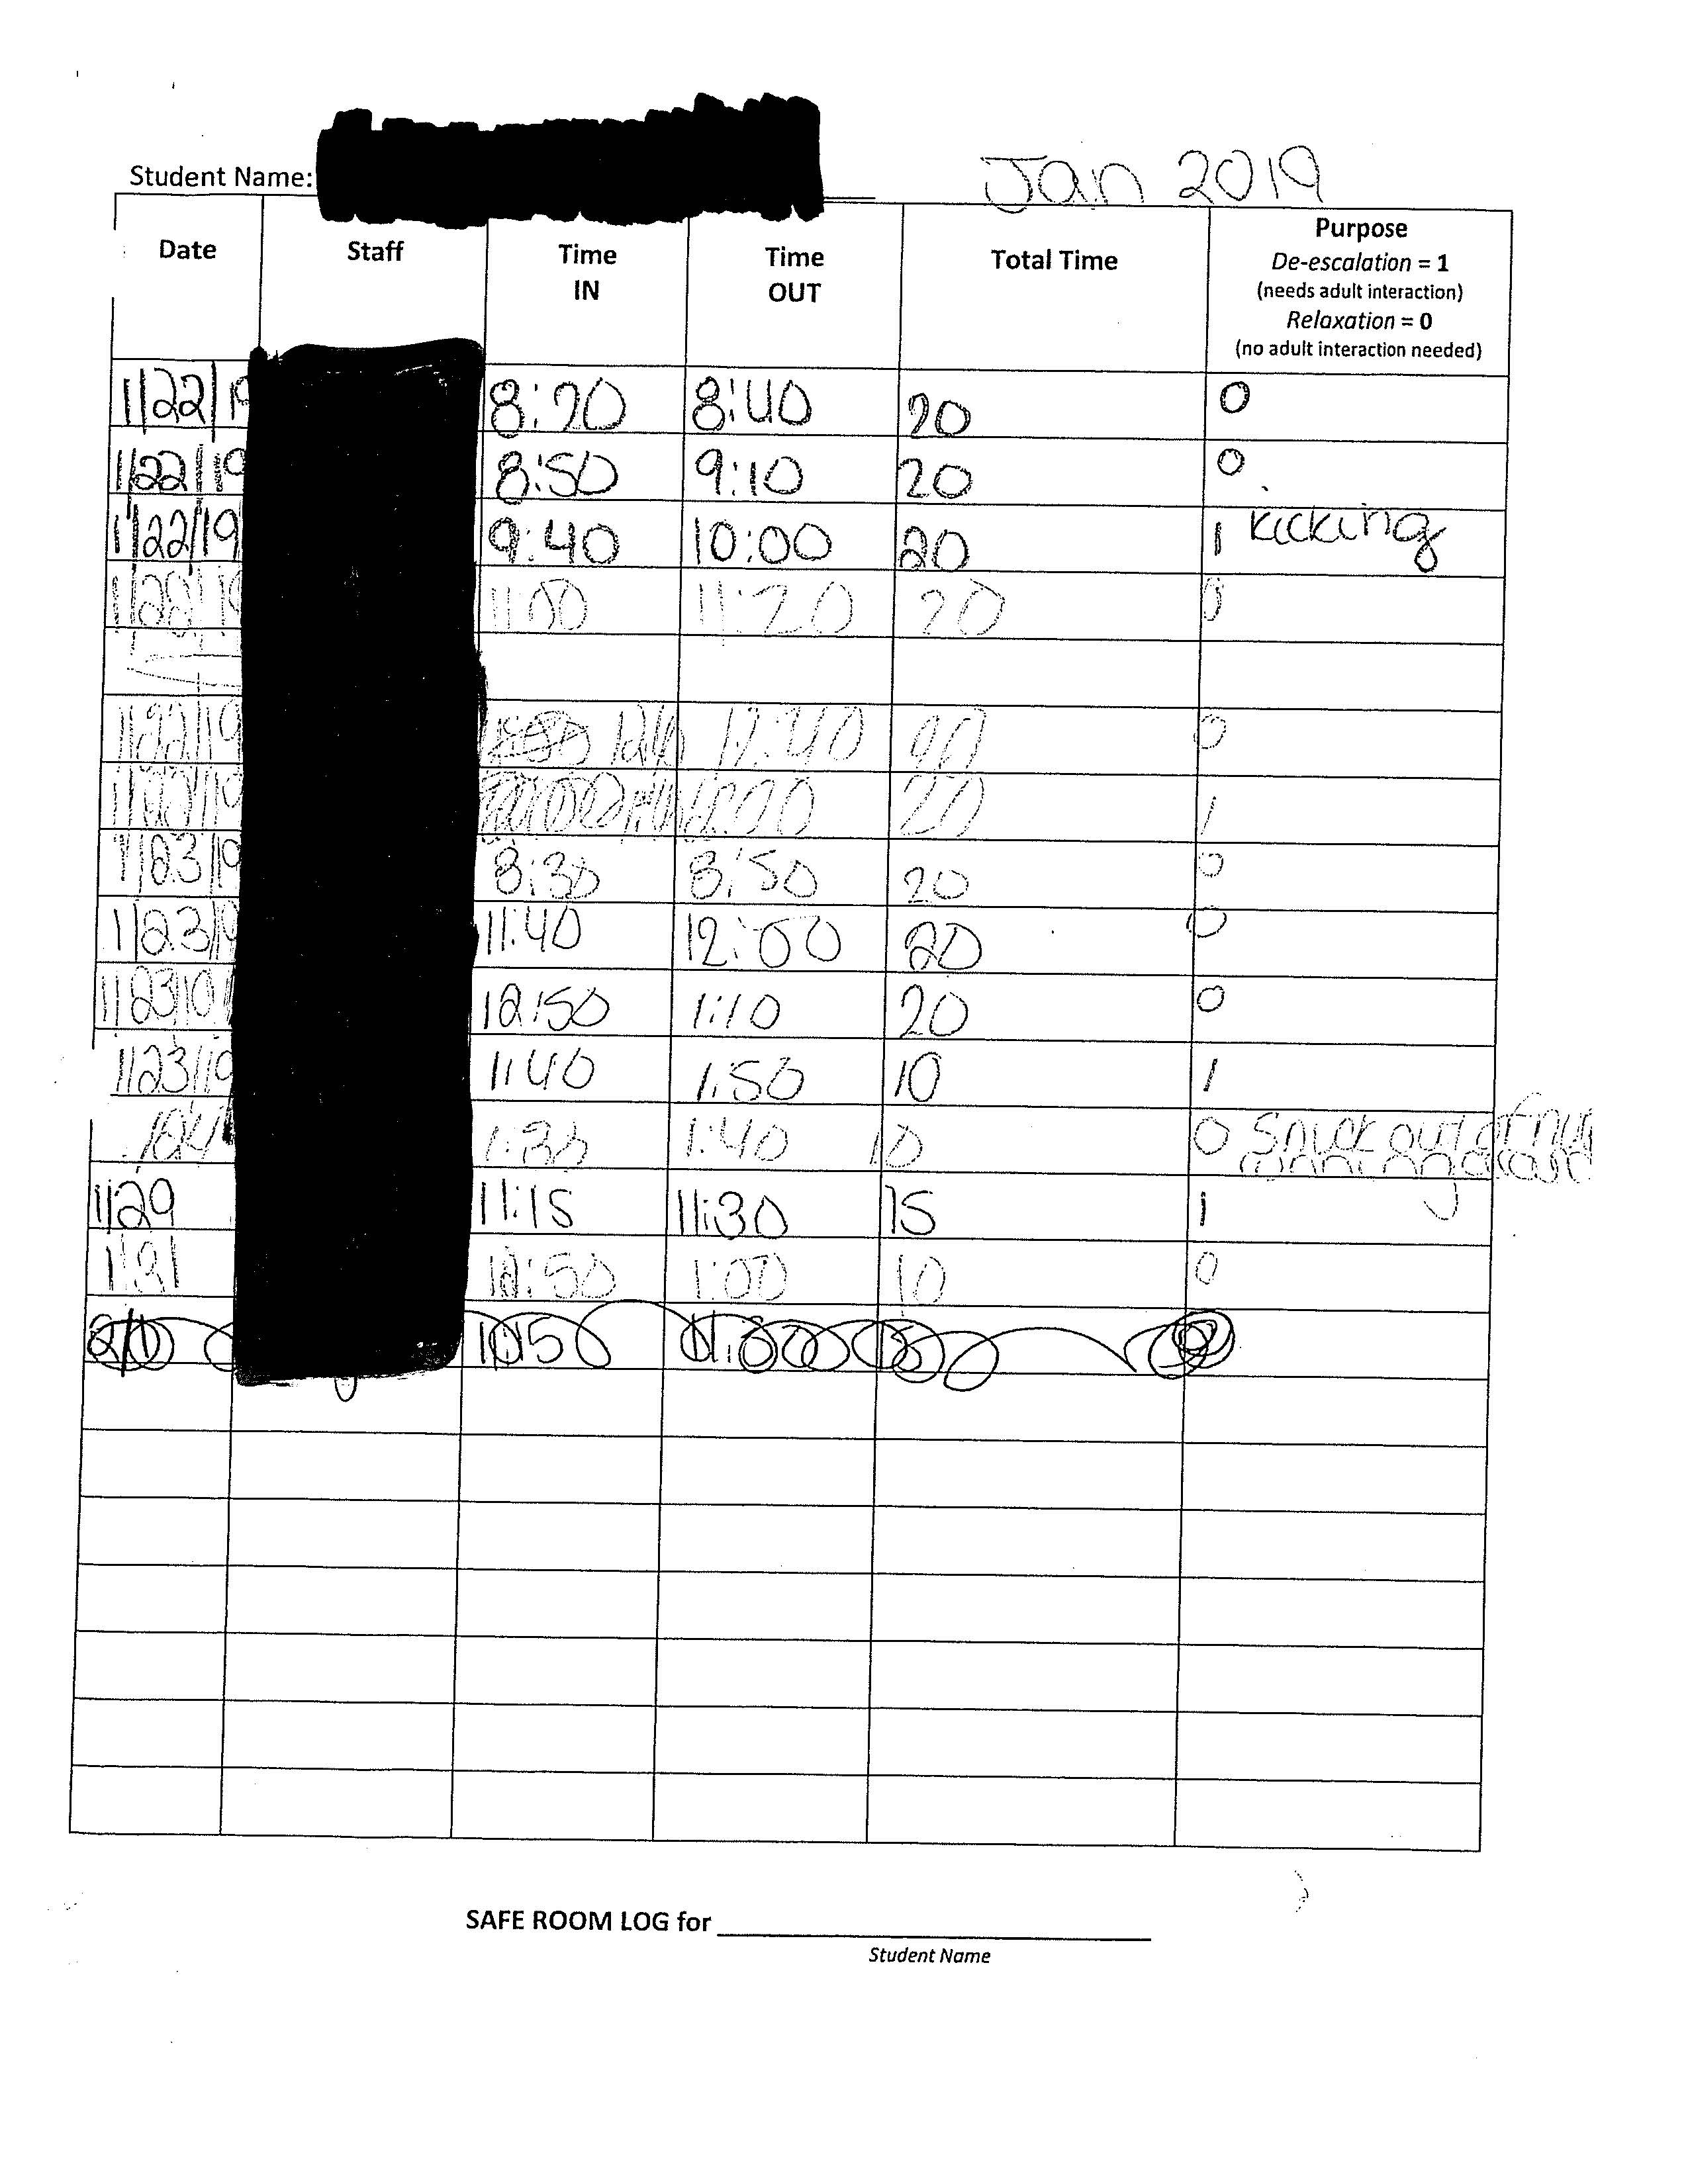 Student Name: Jan 2019
Date Staff Time IN Time OUT Total Time Purpose
De-escalation = 1
(needs adult interaction)
Relaxation = 0
(no adult interaction needed)
1/22/19 8:20 8:40 20 0
1/22/19 8:50 9:10 20 0
1/22/19 9:40 10:00 20 1 kicking
11:00 11:20 20 0
1/22/19 12:40
20 1
1/23/19 8:30 8:50 20 0
1/23/19 11:40 12:00 20 0
12:50 1:10 20 0
1/23/19 1:40 1:50 10 1
1:30 1:40 10 0 Snuck out of
1/29 11:15 11:30 15 1
1/31 1:00 10 0
2/1
SAFE ROOM LOG for
Student Name